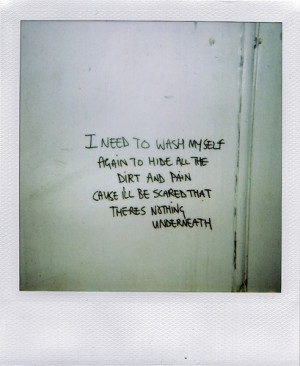 I NEED TO WASH MYSELF
AGAIN TO HIDE ALL THE
DIRT AND PAIN
CAUSE I'LL BE SCARED THAT
THERES NOTHING
UNDERNEATH